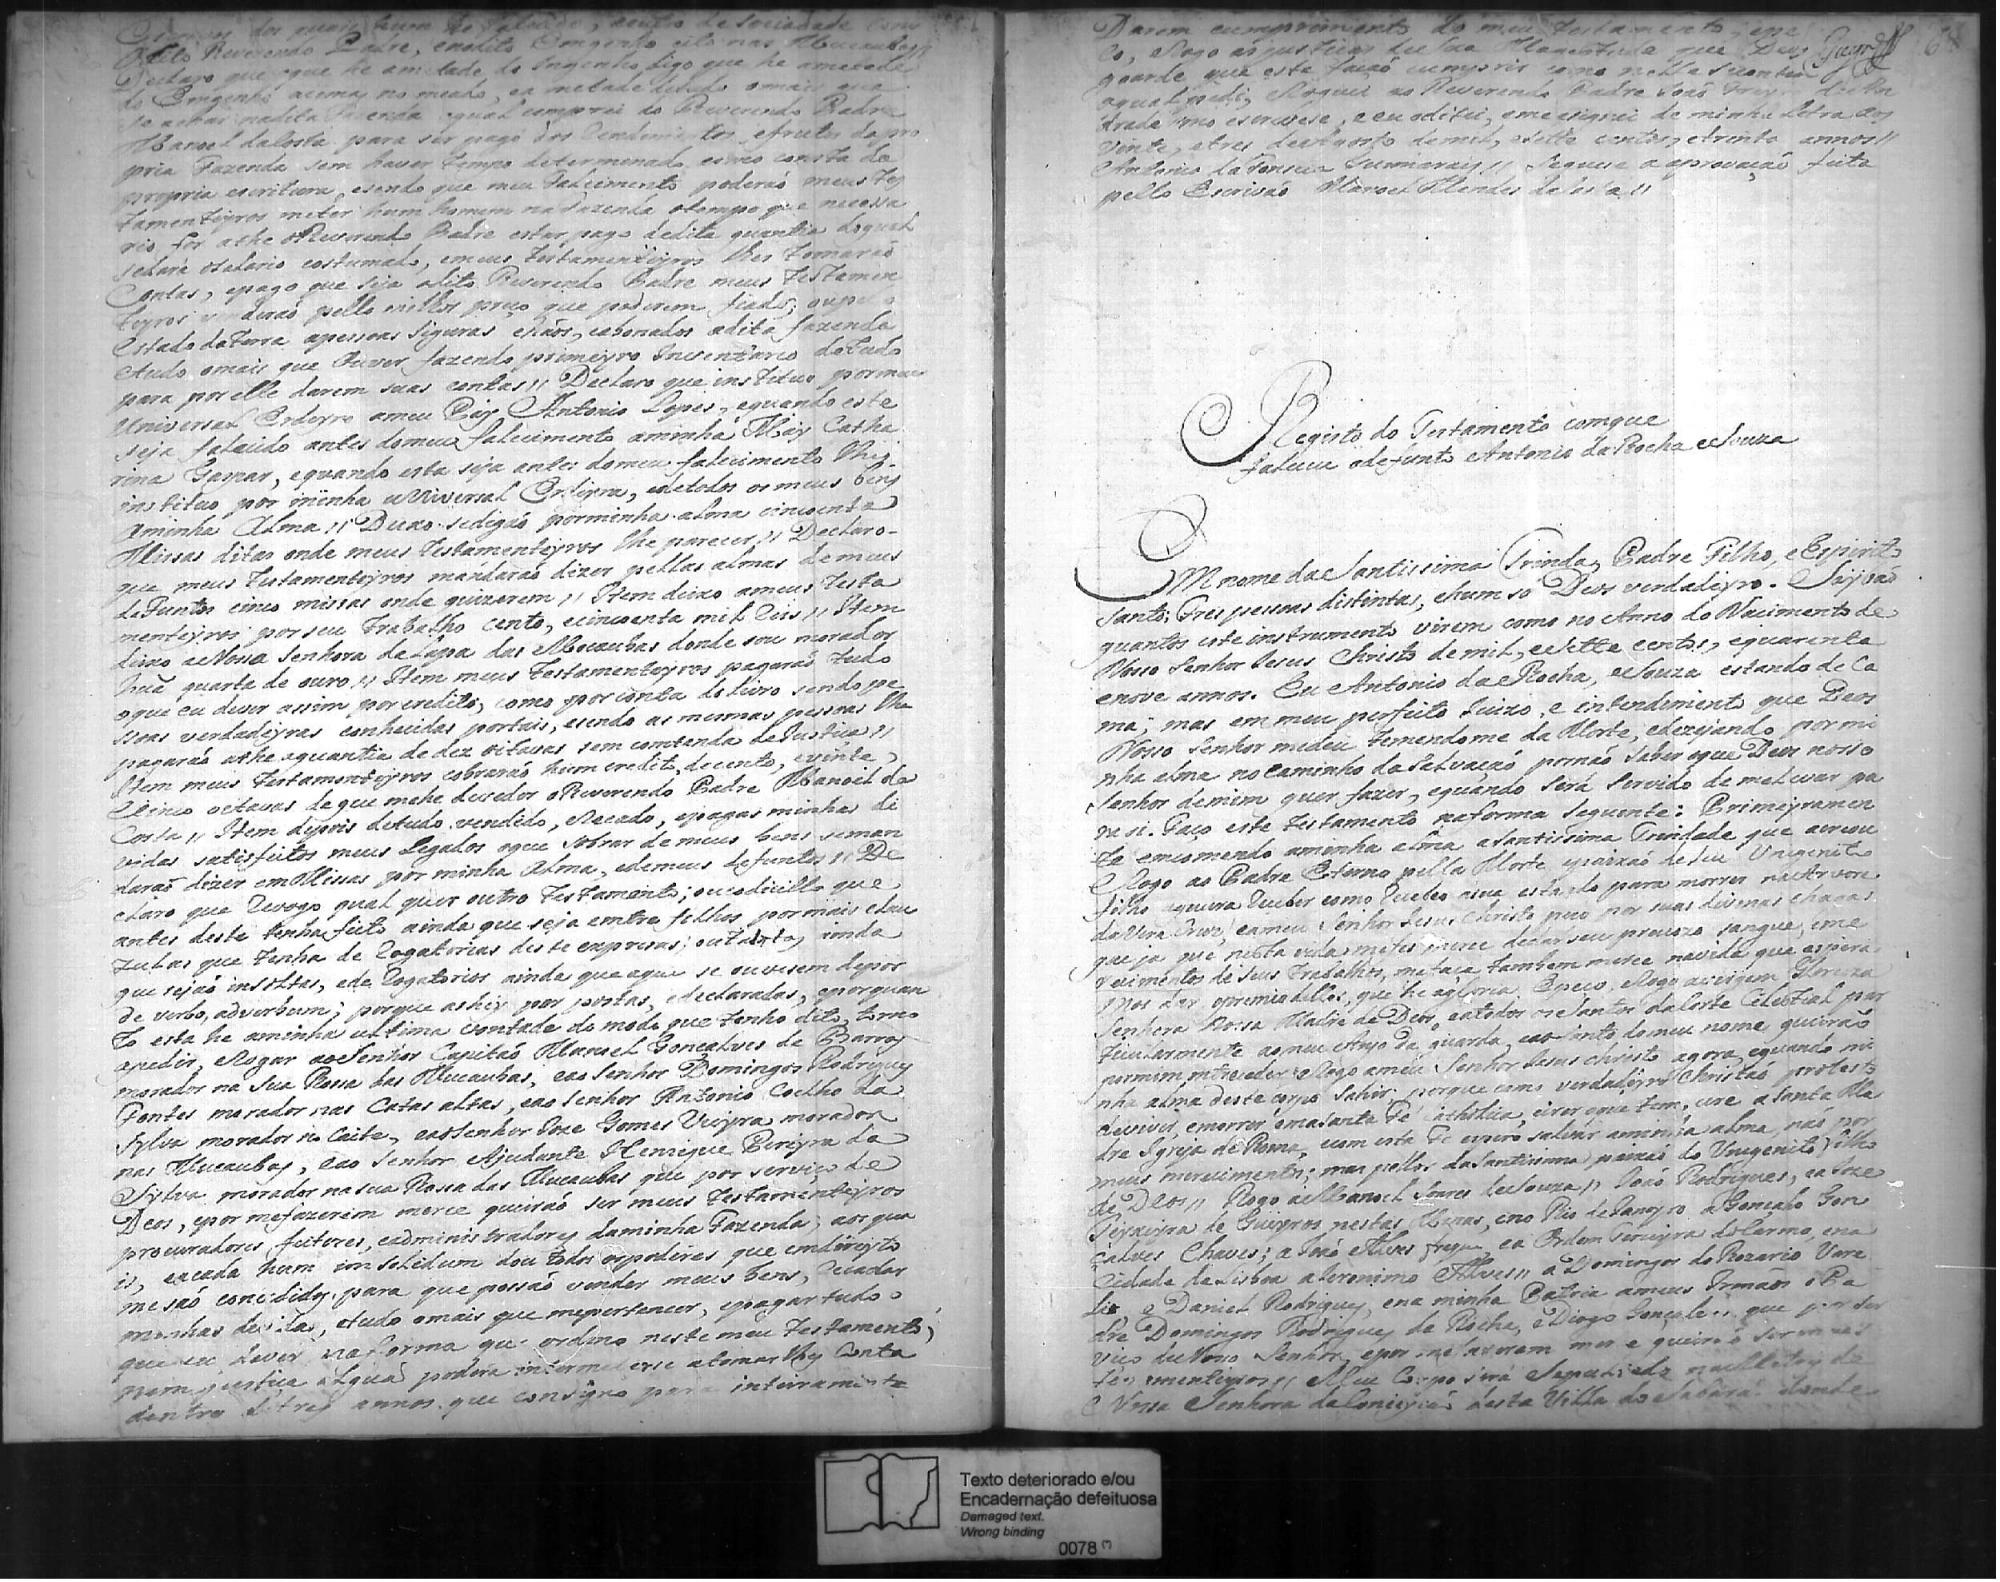 dito Reverendo Padre, e no dito Engenho sito nas Mucaubas //
Declaro que o que he ametade do Ingenho digo que he ametade
do Engenho acima no meado, e a metade de tudo o mais que
se achar na dita fazenda o qual comprei ao Reverendo Padre
Manoel da Costa para ser pago dos rendimentos, e fructos da pro
pria Fazenda sem haver tempo determinado como consta da
propria escritura, e sendo que meu falecimento poderaó meus tes
tamenteyros meter hum homem na fazenda o tempo que necessa
rio for athe o Reverendo Padre estar pago de dita quantia do qual
se dará o salario costumado, e meus testamenteyros lhes tomaraó
Contas, e pago que seja o dito Reverendo Padre meus testamen
teyros venderaó pello milhor preço que poderem fiado, ou pello
estado da terra a pessoas siguras chaós, e abonados a dita fazenda
e tudo o mais que ouver fazendo primeyro Inventario de tudo
para por elle darem suas contas // Declaro que instituo por meu
Universal Erdeyro a meu Pay Antonio Lopes, e quando este
seja falecido antes do meu falecimento a minha May Catha
rina Gomar, e quando esta seja antes do meu falecimento lhes
instituo por minha universal Erdeyra, e de todos os meus beñs
a minha Alma // Deixo se digaó por minha alma cincoenta
Missas ditas onde meus testamenteyros lhe parecer // Declaro
que meus testamenteyros mandaraó dizer pellas almas de meus
defuntos cinco missas onde quizerem // Item deixo a meus testa
menteyros por seu trabalho cento, e cincoenta mil Reis // Item
deixo a Nossa Senhora da Lapa das Mocaubas donde sou morador
huã quarta de ouro // Item meus testamenteyros pagaraó tudo
o que eu dever assim por credito, como por conta de livro sendo pe
ssoas verdadeyras conhecidas por tais, e sendo as mesmas pessoas lhe
pagaraó athe a quantia de dez oitavas sem contenda de Justiça //
Item meus testamenteyros cobraraó hum credito de cento, e vinte,
e cinco oitavas de que me he devedor o Reverendo Padre Manoel da
Costa // Item depois de tudo vendido, e recado, e pagas minhas di
vidas satisfeitos meus Legados o que sobrar de meus bens seman
daraó dizer em Missas por minha Alma, e de meus defuntos // De
claro que Revogo qual quer outro testamento, ou codicillo que
antes deste tenha feito ainda que seja emtre filhos por mais clau
zulas que tenha de Rogatorias deste expressas; ou tacitas ainda
que sejaó insolitas, e de Rogatorios ainda que aqui se ouvesem de por
de verbo, ad verbum; porque as hey por postas, e declaradas, e por quan
to esta he a minha ultima vontade do modo que tenho dito torno
a pedir, e Rogar ao Senhor Capitaó Manoel Gonçalves de Barros
morador na sua Rossa das Mucaubas, e ao Senhor Domingos Rodrigues
Fontes morador nas Catas altas, e ao Senhor Antonio Coelho da
Sylva morador no Caite, e ao Senhor Joze Gomes Vieyra morador
nas Mucaubas, e ao Senhor Ajudante Henrique Pereyra da
Sylva morador na sua Rossa das Mucaubas que por serviço de
Deos, e por me fazerem merce queiraó ser meus testamenteyros
procuradores feitores, e administradores da minha Fazenda; aos qua
is, e a cada hum in solidum dou todos os poderes que em direyto
me saó concedidos para que possaó vender meus bens, Recadar
minhas dividas, e tudo o mais que me pertencer, e pagar tudo o
que eu dever na forma que ordeno neste meu testamento,
nem justiça algua podera intrometerse a tomar lhes Conta
dentro de tres annos que consigno para inteiramente
Darem cumprimento do meu testamento, e pe
ço, e Rogo as justiças de Sua Magestade que Deos
goarde que este façaó cumprir como nelle se contem
o qual pedi, e Roguei ao Reverendo Padre Joaó
drade mo escrevese, e eu o ditei, e me asignei de minha Letra aos
vinte, e tres de Agosto de mil, e sette centos, e trinta annos //
Antonio da Fonseca Guimarais // Seguese a aprovaçaó feita
pello Escrivaó Manoel Mendes da Costa //
Registo do Testamento comque
faleceu o defunto Antonio da Rocha e Souza
Em nome da Santissima Trindade, Padre Filho, e Espirito
Santo, tres pessoas distintas, e hum só Deos verdadeyro. Saybaó
quantos este instrumento virem como no Anno do Nacimento de
Nosso Senhor Jesus Christo de mil, e sette centos, e quarenta
e nove annos. Eu Antonio da Rocha, e Souza estando de Ca
ma, mas em meu perfeito Juizo, e intendimento que Deos
Nosso Senhor me deu temendome da Morte, e dezejando por mi
nha alma no caminho da Salvaçaó por naó saber o que Deos nosso
Senhor de mim quer fazer, e quando será servido de me levar pa
ra si. Faço este testamento na forma seguente: Primeyramen
te encomendo a minha alma a Santissima Trindade que a creou
e Rogo ao Padre Eterno pella Morte e paixaó de seu Unigenito
filho a queira receber como Recebeo a sua estando para morrer na Arvore
da Vera Cruz, e a meu Senhor Jesus Christo peço por suas divinas chagas
que ja que nesta vida me fes merce de dar seu precioso sangue, e me
recimentos de seus trabalhos, me faça tambem merce na vida que espera
mos dar o premio delles, que he a gloria. E peço, e Rogo a virgem Gloriosa
Senhora Nossa Madre de Deos, e a todos os Santos da Corte Celestial par
ticularmente ao meu Anjo da guarda, e ao Santo do meu nome queiraó
por mim interceder e Rogo a meu Senhor Jesus christo agora, e quando mi
nha alma deste corpo sahir; porque como verdadeyro Christaó protesto
de viver, e morrer em a santa Fé Catholica, e crer o que tem, e cre a Santa Ma
dre Igreja de Roma, e com esta Fé espero salvar a minha alma, naó por
meus merecimentos; mas pellos da Santissima paixaó do Unigenito Filho
de Deos // Rogo a Manoel Soares de Souza // Joaó Rodrigues, e a Joze
Teyxeyra de Queyros nestas Minas, e no Rio de Janeyro a Gonçalo Gon
çalves Chaves; a Joaó Alves, e a Ordem Terceyra do Carmo, e na
Cidade de Lisboa a Jeronimo Alves // a Domingos do Rozario Vare
la e Daniel Rodrigues, e na minha Patria a meus Irmãos o Pa
dre Domingos Rodrigues da Rocha, e Diogo Gonçalves que por ser
viço de Nosso Senhor, e por me fazerem merce queiraó ser meus
testamenteyros // Meu Corpo sera Sepultado na Matriz de
Nossa Senhora da Conceyçaó desta Villa do Sabará donde
Texto deteriorado e/ou
Encadernação defeituosa
Damaged text.
Wrong binding
0078